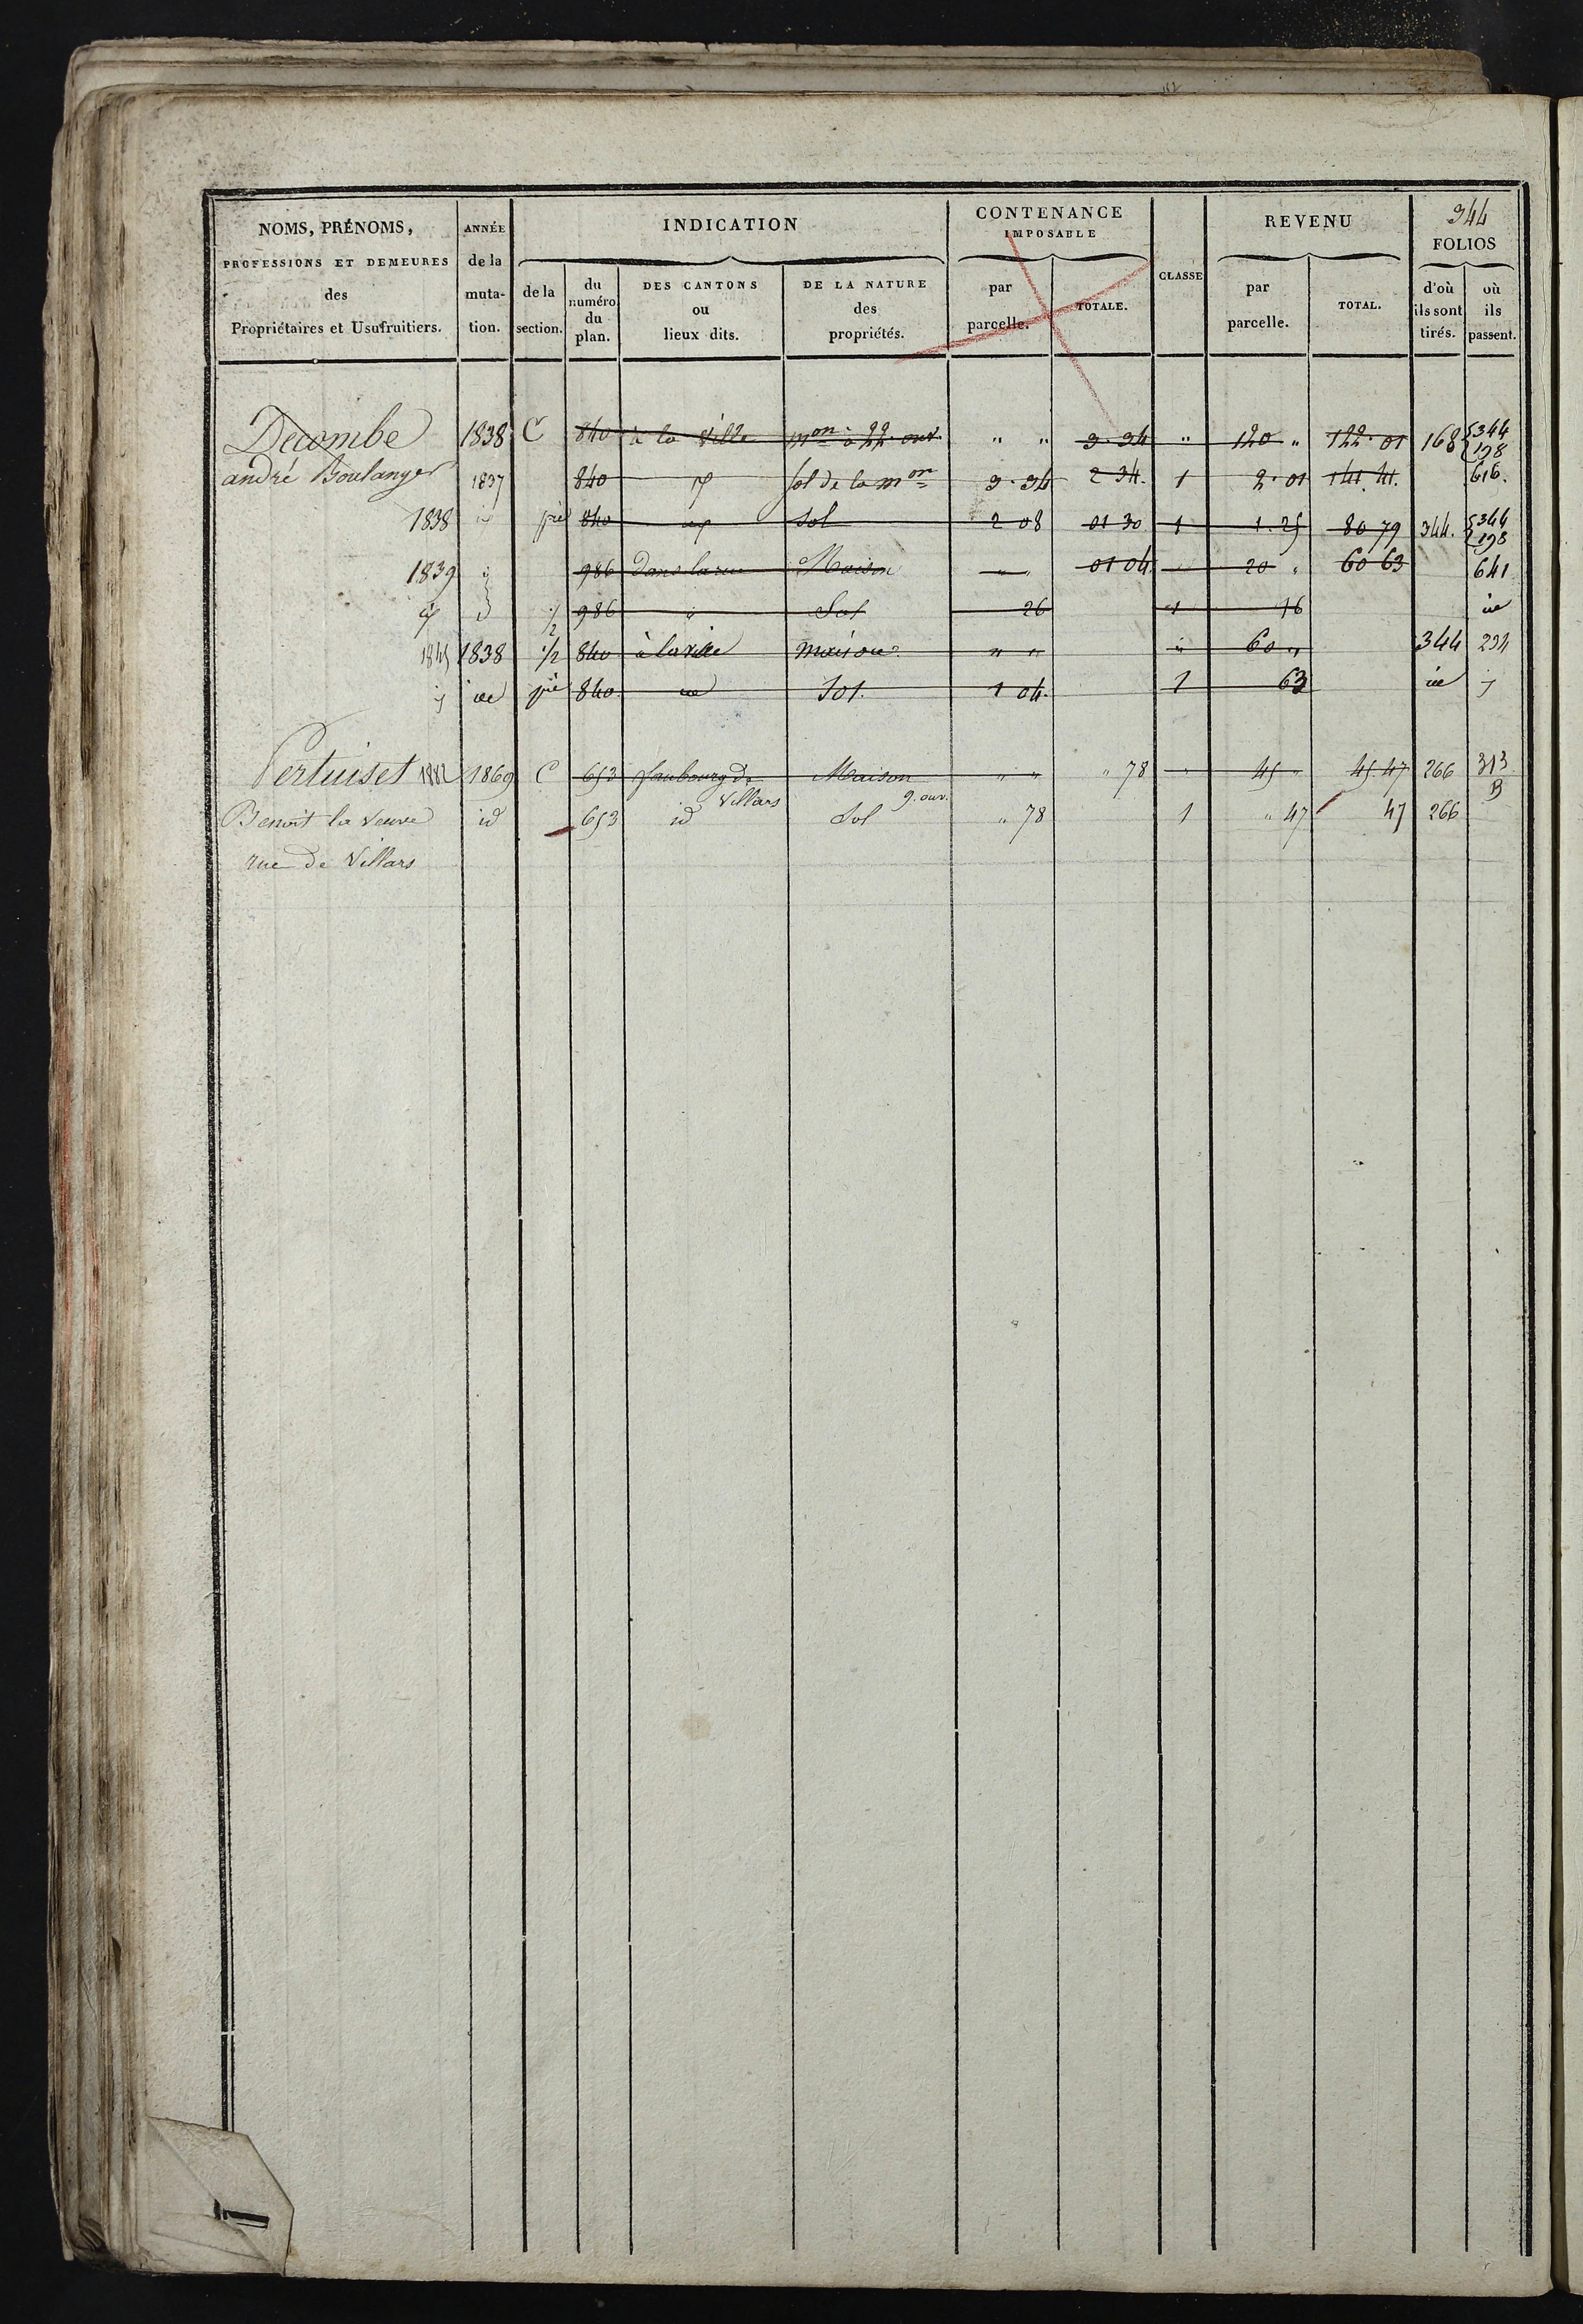 344
NOMS, PRÉNOMS, PROFESSIONS ET DEMEURES des Propriétaires et Usufruitiers.
ANNÉE de la mutation.
INDICATION
de la section.
du numéro du plan.
DES CANTONS ou lieux dits.
DE LA NATURE des propriétés.
CONTENANCE IMPOSABLE
par parcelle.
TOTALE.
CLASSE
REVENU
par parcelle.
TOTAL.
FOLIOS
d'où ils sont tirés.
où ils passent.
Decombe 1838 C 840 à la ville mon à 22 ouv. " " 3.34 " 120 " 122.01 168 {344 198
andré Boulanger 1837 840 id sol de la mon 3.34 2 34. 1 2.01 141.41. 616.
1838 id pie 840 id Sol 2 08 01 30 1 1.25 80 79 344. {344 198
1839 id 986 dans la rue Maison " " 01 04 20 " 60 63 641
id id 1/2 986 " Sol 26 1 16 id
1845 1838 1/2 840 à la ville maison " " " 60 " 344 234
id id pie 840 id Sol. 1 04. 1 63 id id
Pertuiset 1882 1869 C 653 faubourg de Villars Maison 9. ouv. " " " 78 " 45 " 45.47 266 313 B
Benoit la veuve id 653 id Sol " 78 1 " 47 47 266
rue de Villars